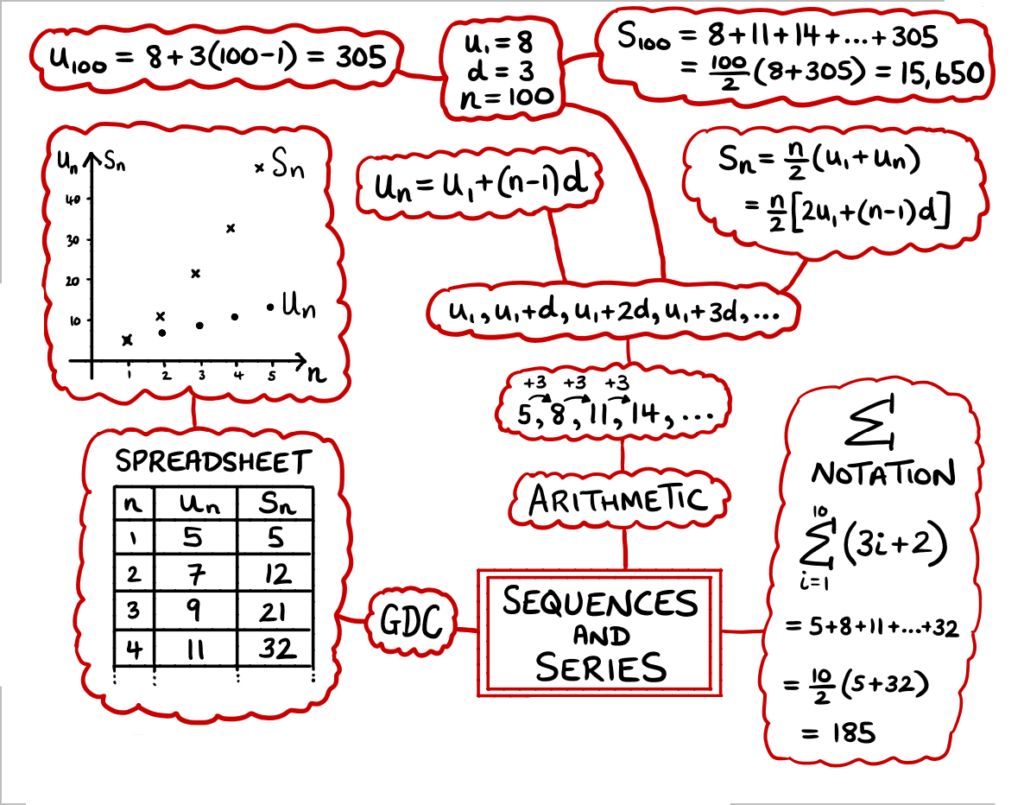 u₁₀₀ = 8+3(100-1) = 305
u₁=8
d=3
n=100
S₁₀₀ = 8+11+14+...+305
= 100/2 (8+305) = 15,650
uₙ Sₙ
40
30
20
10
× Sₙ
• uₙ
1 2 3 4 5 n
uₙ=u₁+(n-1)d
Sₙ= n/2 (u₁+uₙ)
= n/2 [2u₁+(n-1)d]
u₁, u₁+d, u₁+2d, u₁+3d, ...
+3 +3 +3
5, 8, 11, 14, ...
ARITHMETIC
SPREADSHEET
n uₙ Sₙ
1 5 5
2 7 12
3 9 21
4 11 32
GDC
SEQUENCES
AND
SERIES
Σ
NOTATION
10
Σ (3i+2)
i=1
= 5+8+11+...+32
= 10/2 (5+32)
= 185